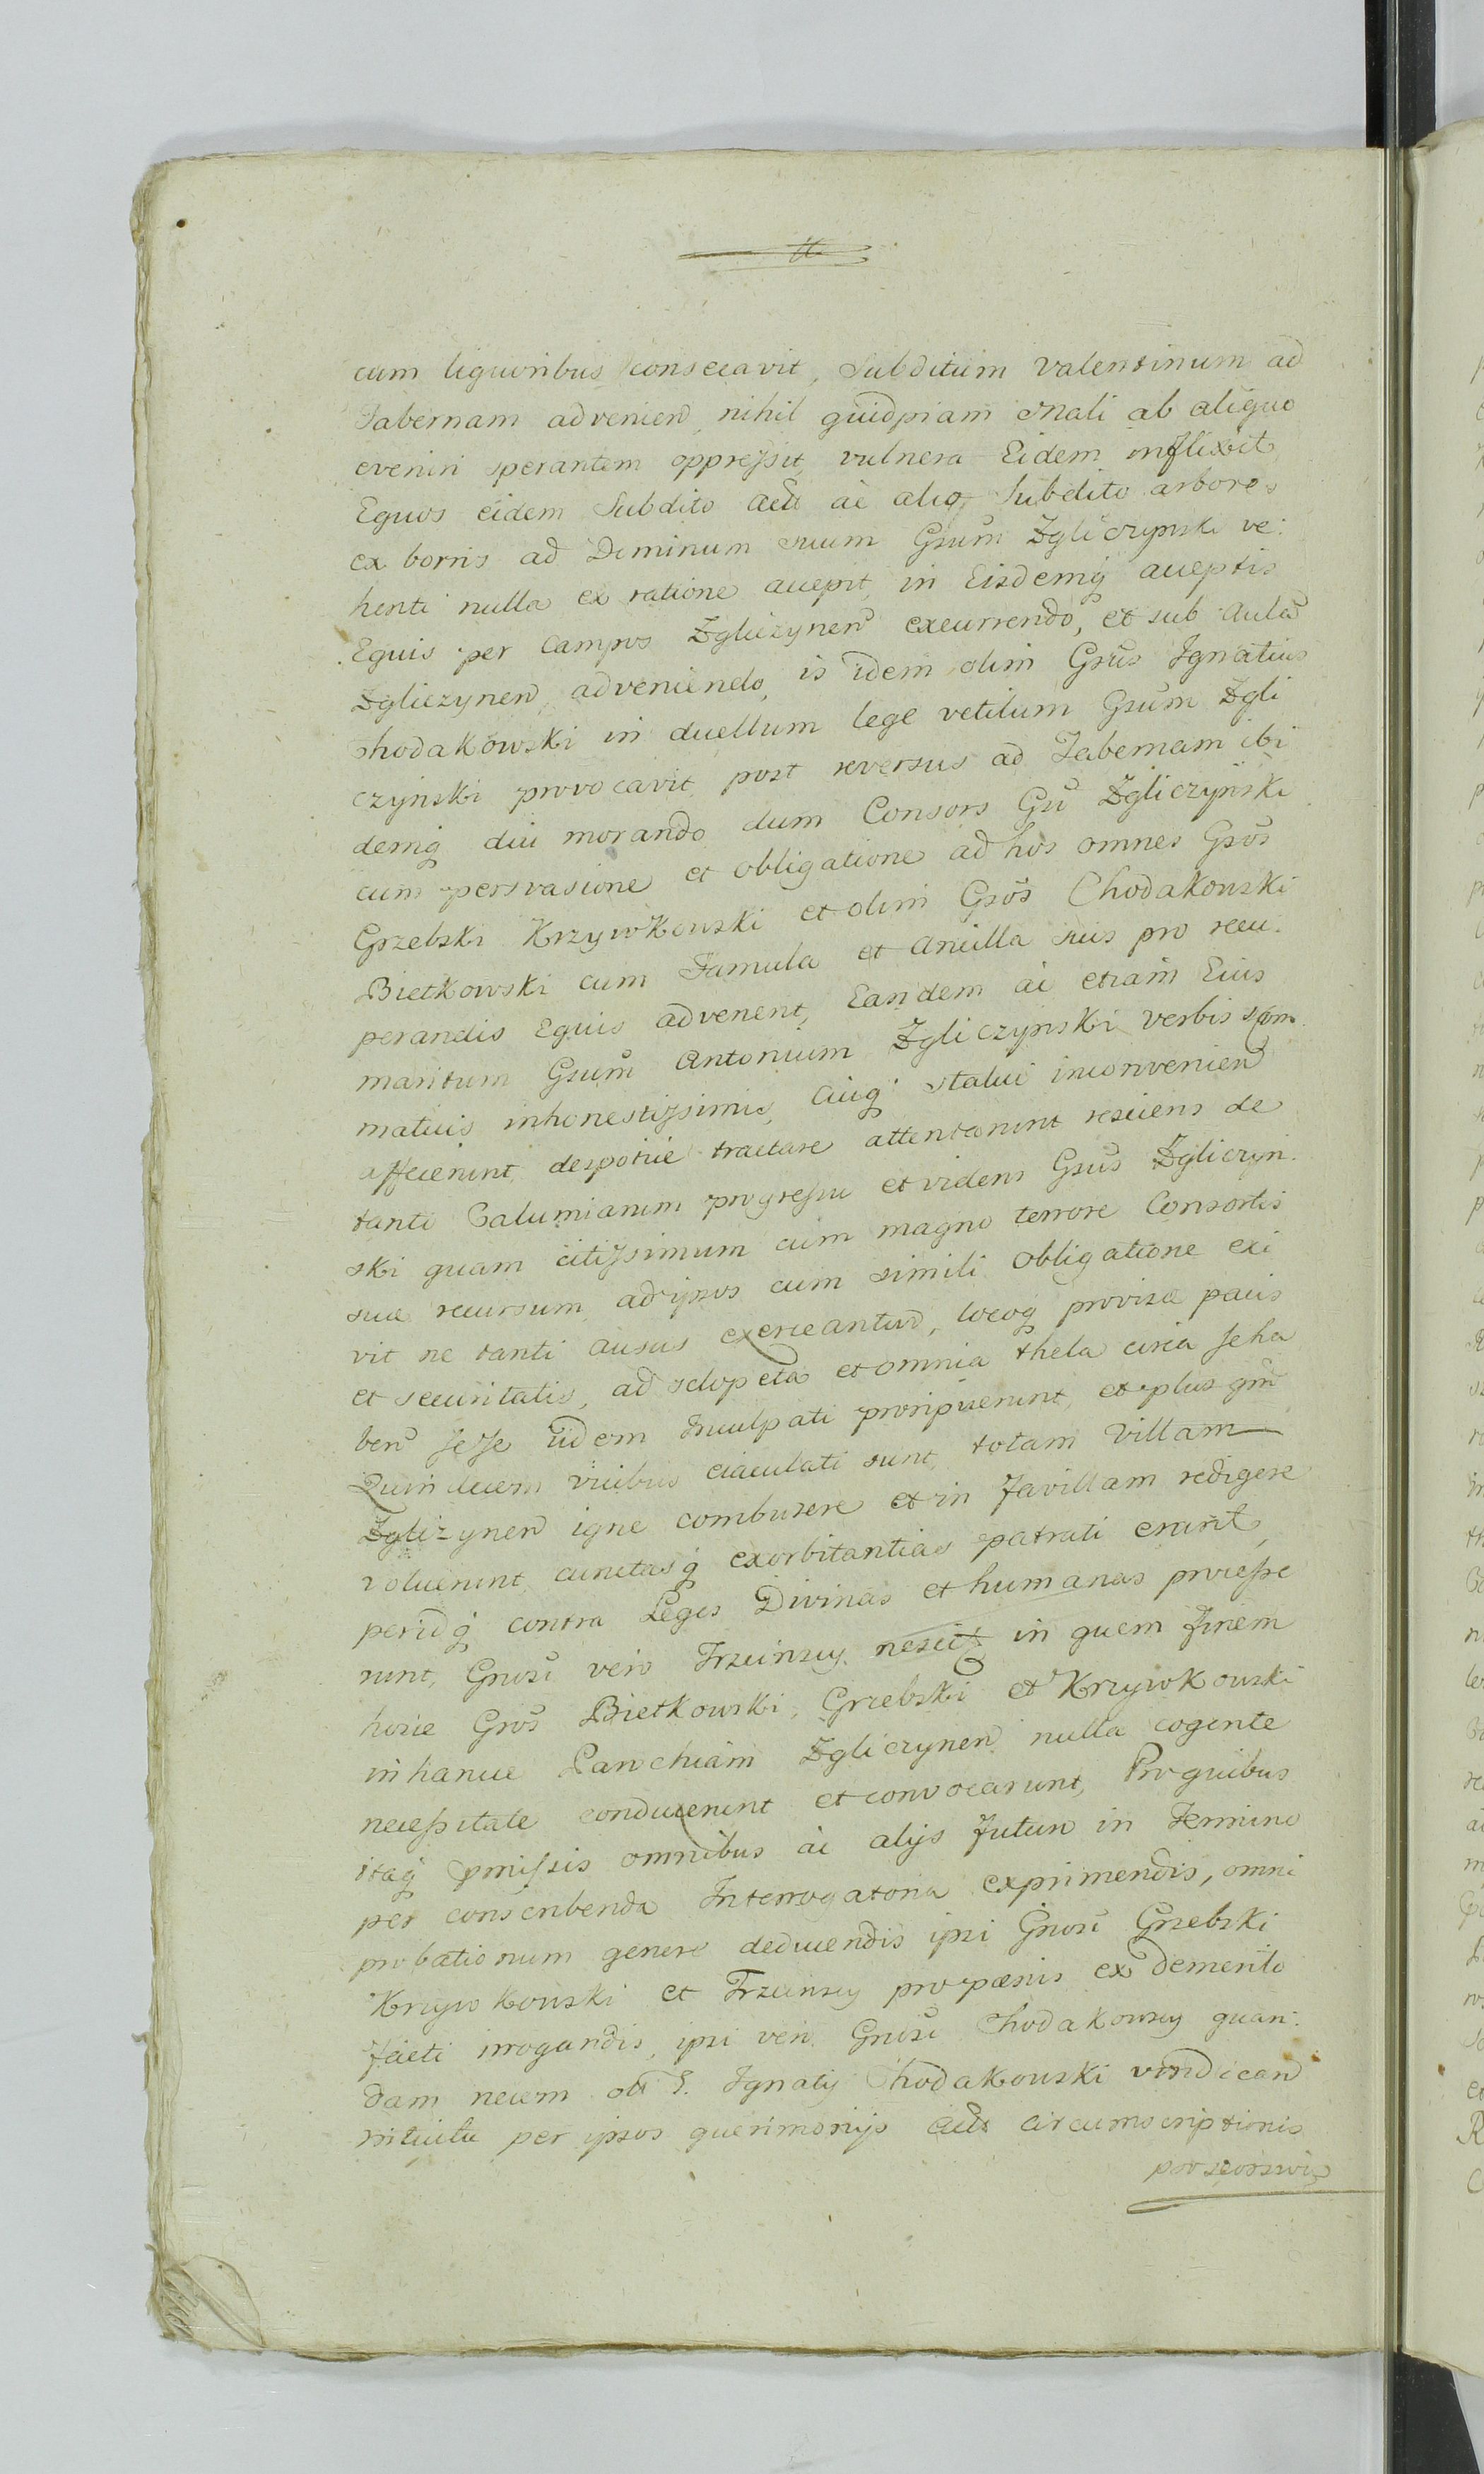 cum liquoribus consecavit, Subditum Valentinum ad
Tabernam advenien̄ nihil quidpiam Mali ab aliquo
eveniri sperantem oppressit, vulnera Eidem inflixit
Equos eidem Subdito ac alio Subdito arbores
ex borris ad Dominum suum Gsum Zgliczynski ve:
henti nulla ex ratione accepit, in Eisdemq̃ acceptis
Equis per Campos Zgliczynen̄ excurrendo, et sub Aula
Zgliczynen̄ adveniendo, is idem olim Gsus Ignatius
Chodakowski in duellum lege vetitum Gsum Zgli
czynski provocavit post reversus ad Tabernam ibi
demq̃ diu morando dum Consors Gsi Zgliczynski
cum persvasione et obligatione ad hos omnes Gsos
Grzebski Krzywkowski et olim Gsos Chodakowski
Bietkowski cum Famula et Ancilla suis pro recu:
perandis Equis advenerit, Eandem ac etiam Eius
maritum Gsum Antonium Zgliczynski verbis igno
matuis inhonestissimis, Cuiq̃ statui inconvenien̄
affecerunt, despotice tractare attentarunt resciens de
tanti Calumniarum progressu et videns Gsus Zgliczyn:
ski quam citissimum cum magno terrore Consortis
suæ recursum, ad ipsos cum simili obligatione exi
vit ne tanti ausus exerceantur, locoq̃ provisæ pacis
et securitatis, ad sclopeta et omnia thela circa se ha
ben̄ sese iidem Inculpati proripuerunt, et plus qm̄
Quindecem vicibus eiaculati sunt, totam Villam
Zgliczynen̄ igne comburere et in favillam redigere
voluerunt cunctasq̃ exorbitantias patrati erant,
perindq̃ contra Leges Divinas et humanas processe
runt, Gnosi vero Trzcinscy nescitr in quem finem
hosce Gnos Bietkowski, Grzebski et Krzywkowski
in hancce Parochiam Zgliczynen̄ nulla cogente
necessitate conduxerunt et convocarunt, Pro quibus
itaq̃ p̄missis omnibus ac alijs futuro in Termino
per conscribenda Interrogatoria exprimendis, omni
probationum genere deducendis ipsi Gnosi Grzebski
Krzywkowski et Trzcinscy pro pœnis ex demerito
facti irrogandis, ipsi vero Gnosi Chodakowscy quan:
dam necem olī G. Ignatij Chodakowski vindican̄
intuitu per ipsos querimonijs circumscriptionis